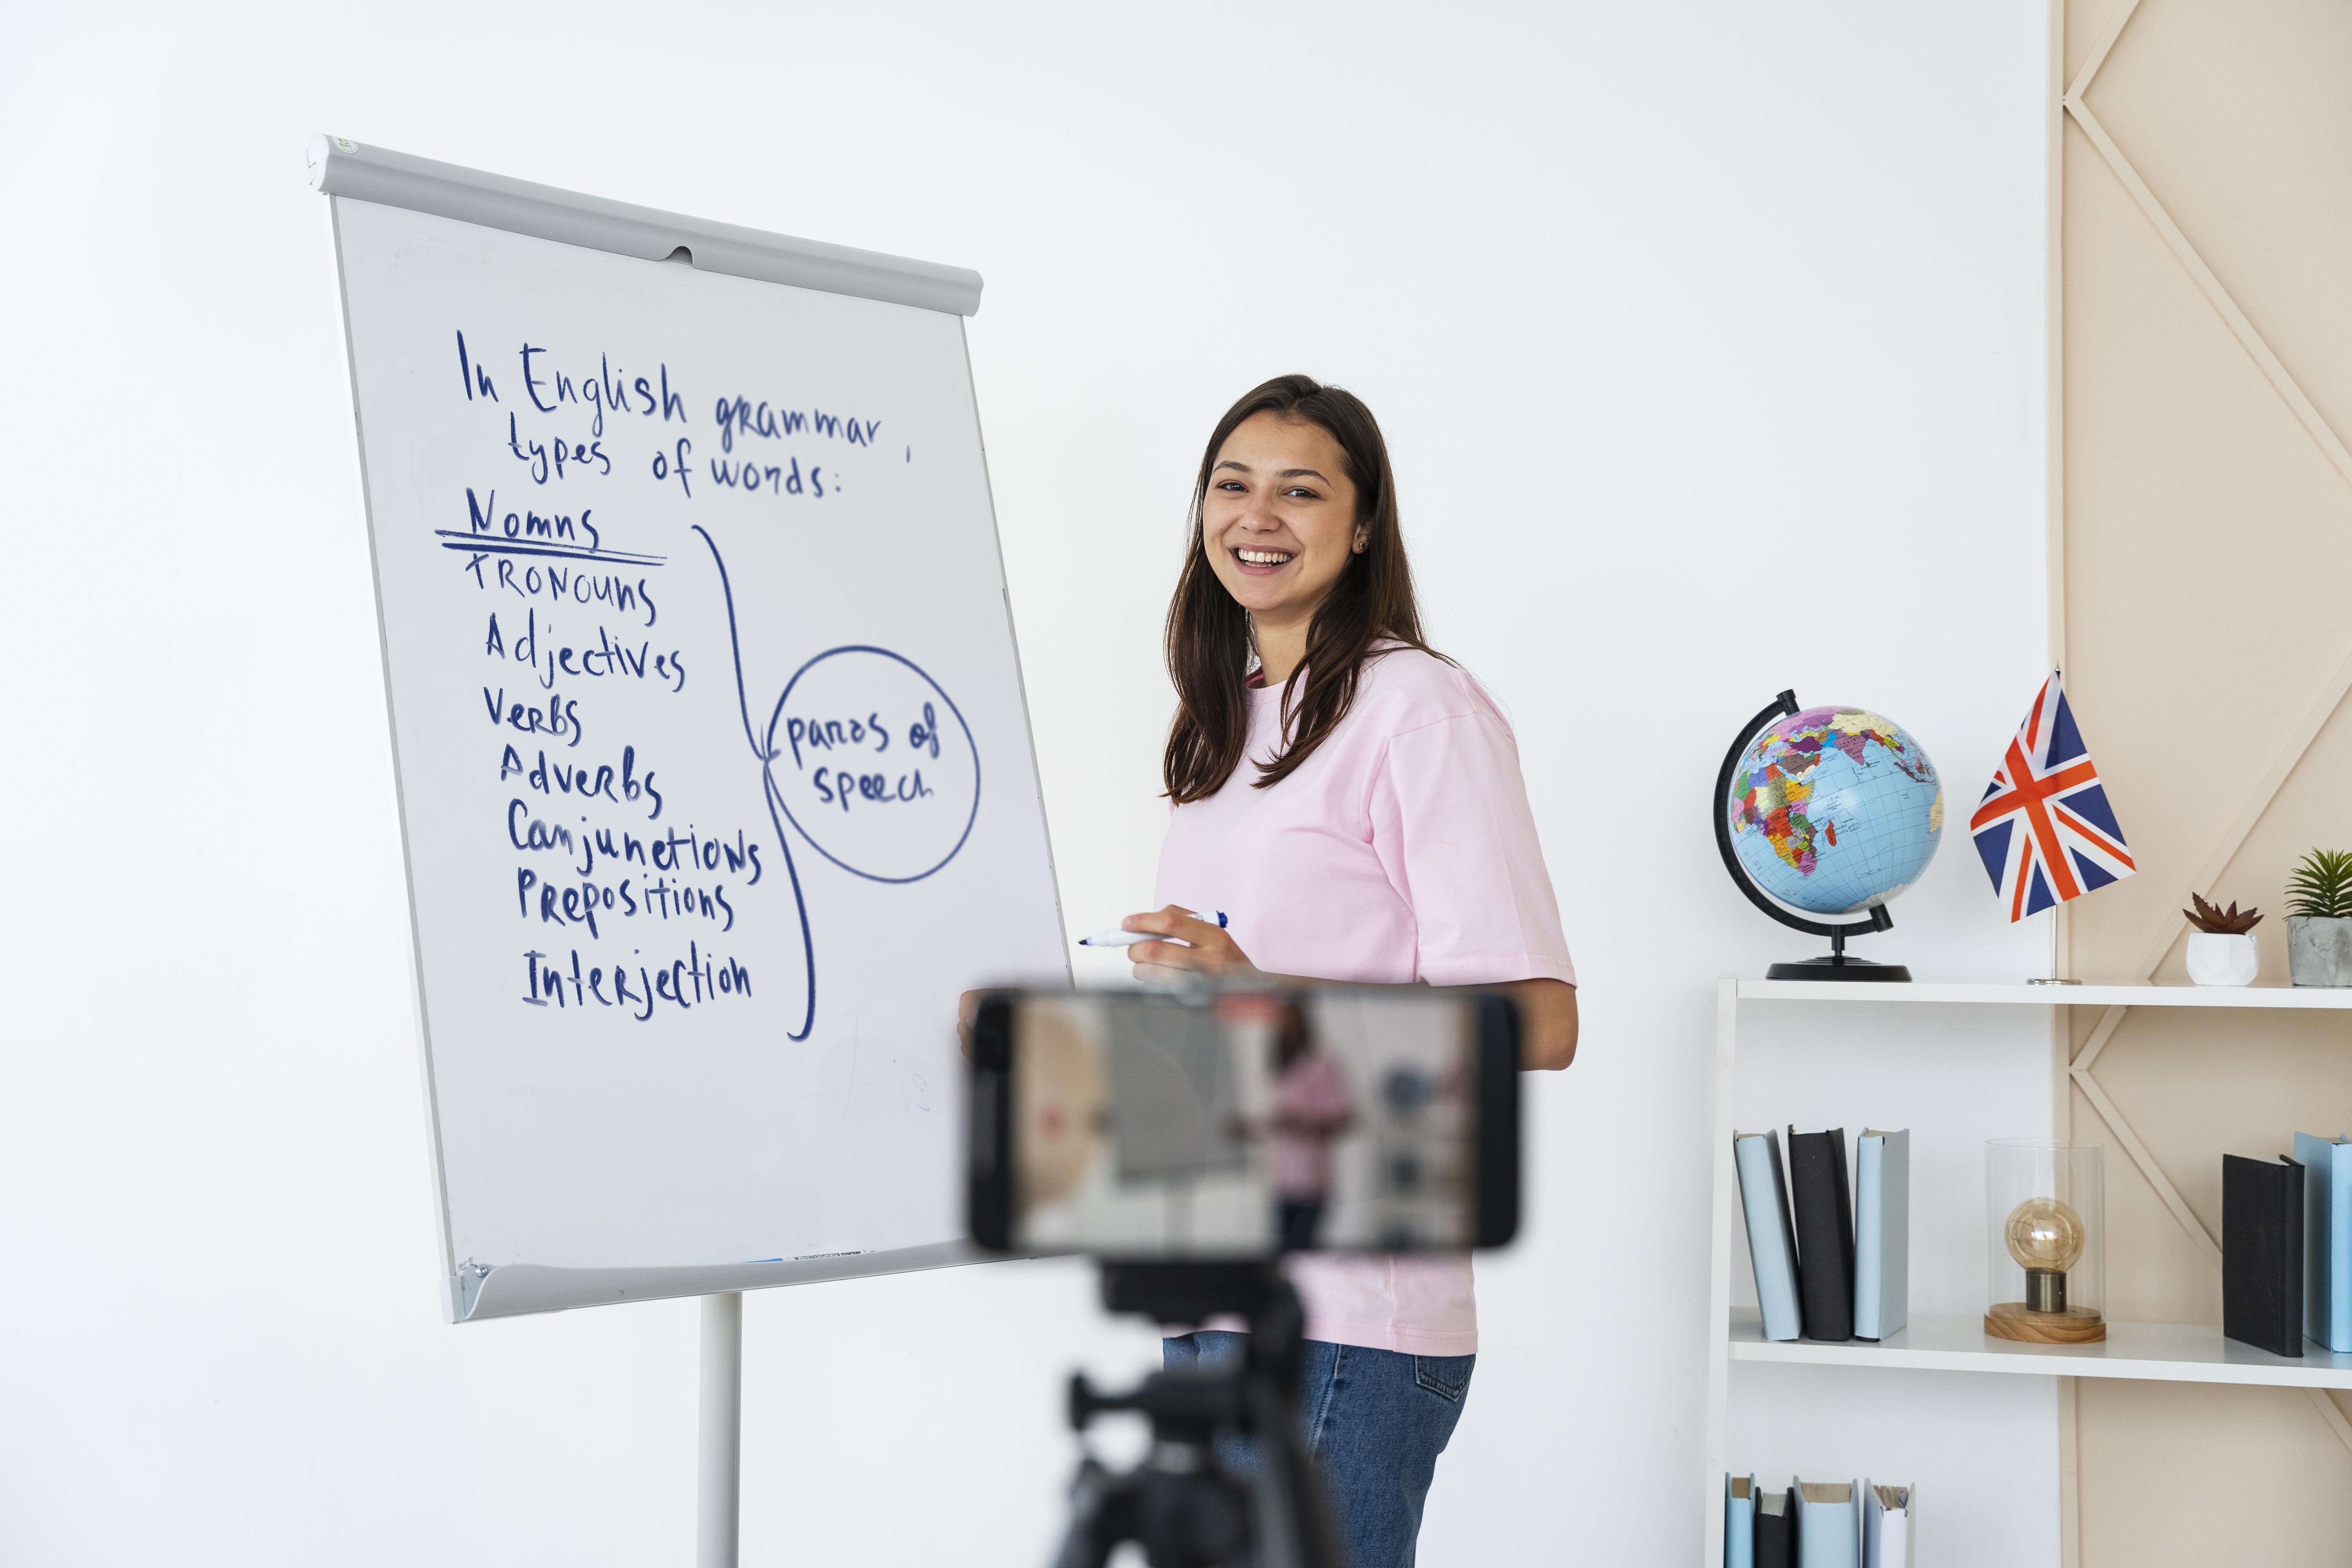 In English grammar,
types of words:
Nomns
PRONOUNS
Adjectives
Verbs
Adverbs
Canjunctions
Prepositions
Interjection
parts of
speech